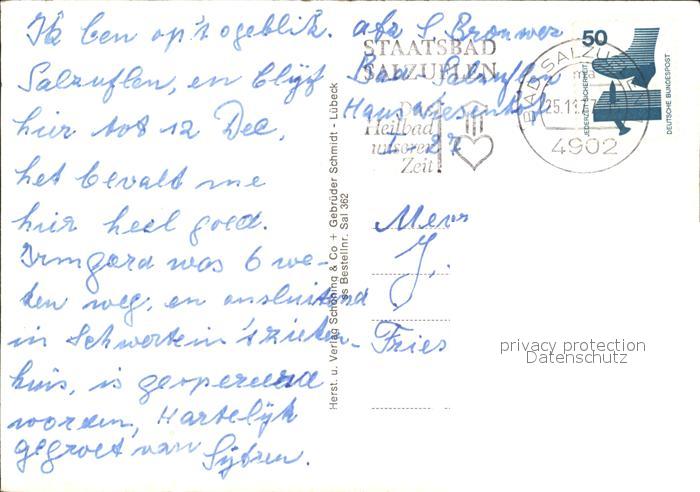 Ik ben op 't ogeblik.
Salzuflen, en blijf
hier tot 12 Dec.
het bevalt me
hier heel goed.
Irmgard was 6 we-
ken weg, en ansluitend
in Schwerte in 't zieken-
huis, is geopereerd
worden, Hartelijk
gegroet van
Sijtsen.
afz S. Brouwer
Bad Salzuflen
Haus Wiesenhof
Mevr
J.
Fries
STAATSBAD
SALZUFLEN
Das
Heilbad
unserer
Zeit!
BAD SALZUFLEN
ma
25.11.7
4902
50
JEDERZEIT SICHERHEIT
DEUTSCHE BUNDESPOST
Herst. u. Verlag Schöning & Co + Gebrüder Schmidt - Lübeck
ss Bestellnr. Sal 362
privacy protection
Datenschutz